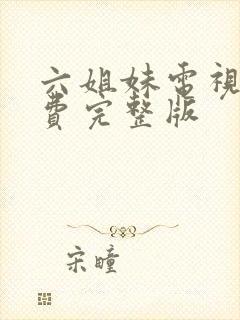 六姐妹電視
費完整版
宋瞳